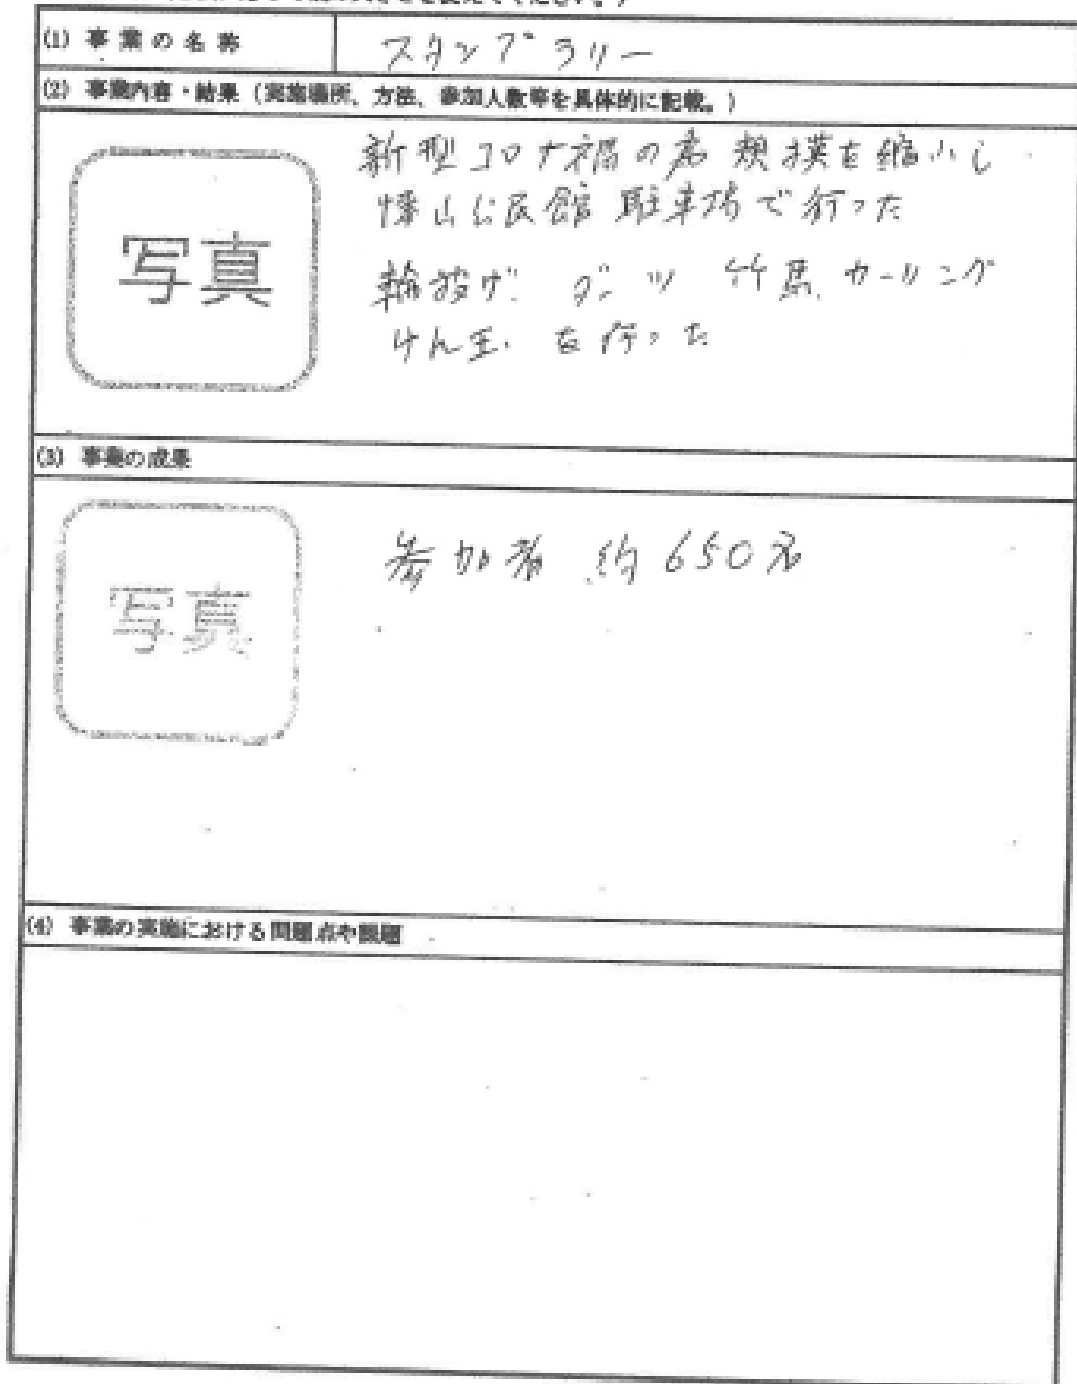 (1) 事業の名称
スタンプラリー
(2) 事業内容・結果（実施場所、方法、参加人数等を具体的に記載。）
写真
新型コロナ禍の為 規模を縮小し
山公民館 駐車場で行った
輪投げ ダーツ 竹馬 カーリング
けん玉 を行った
(3) 事業の成果
写真
参加者 約650名
(4) 事業の実施における問題点や課題